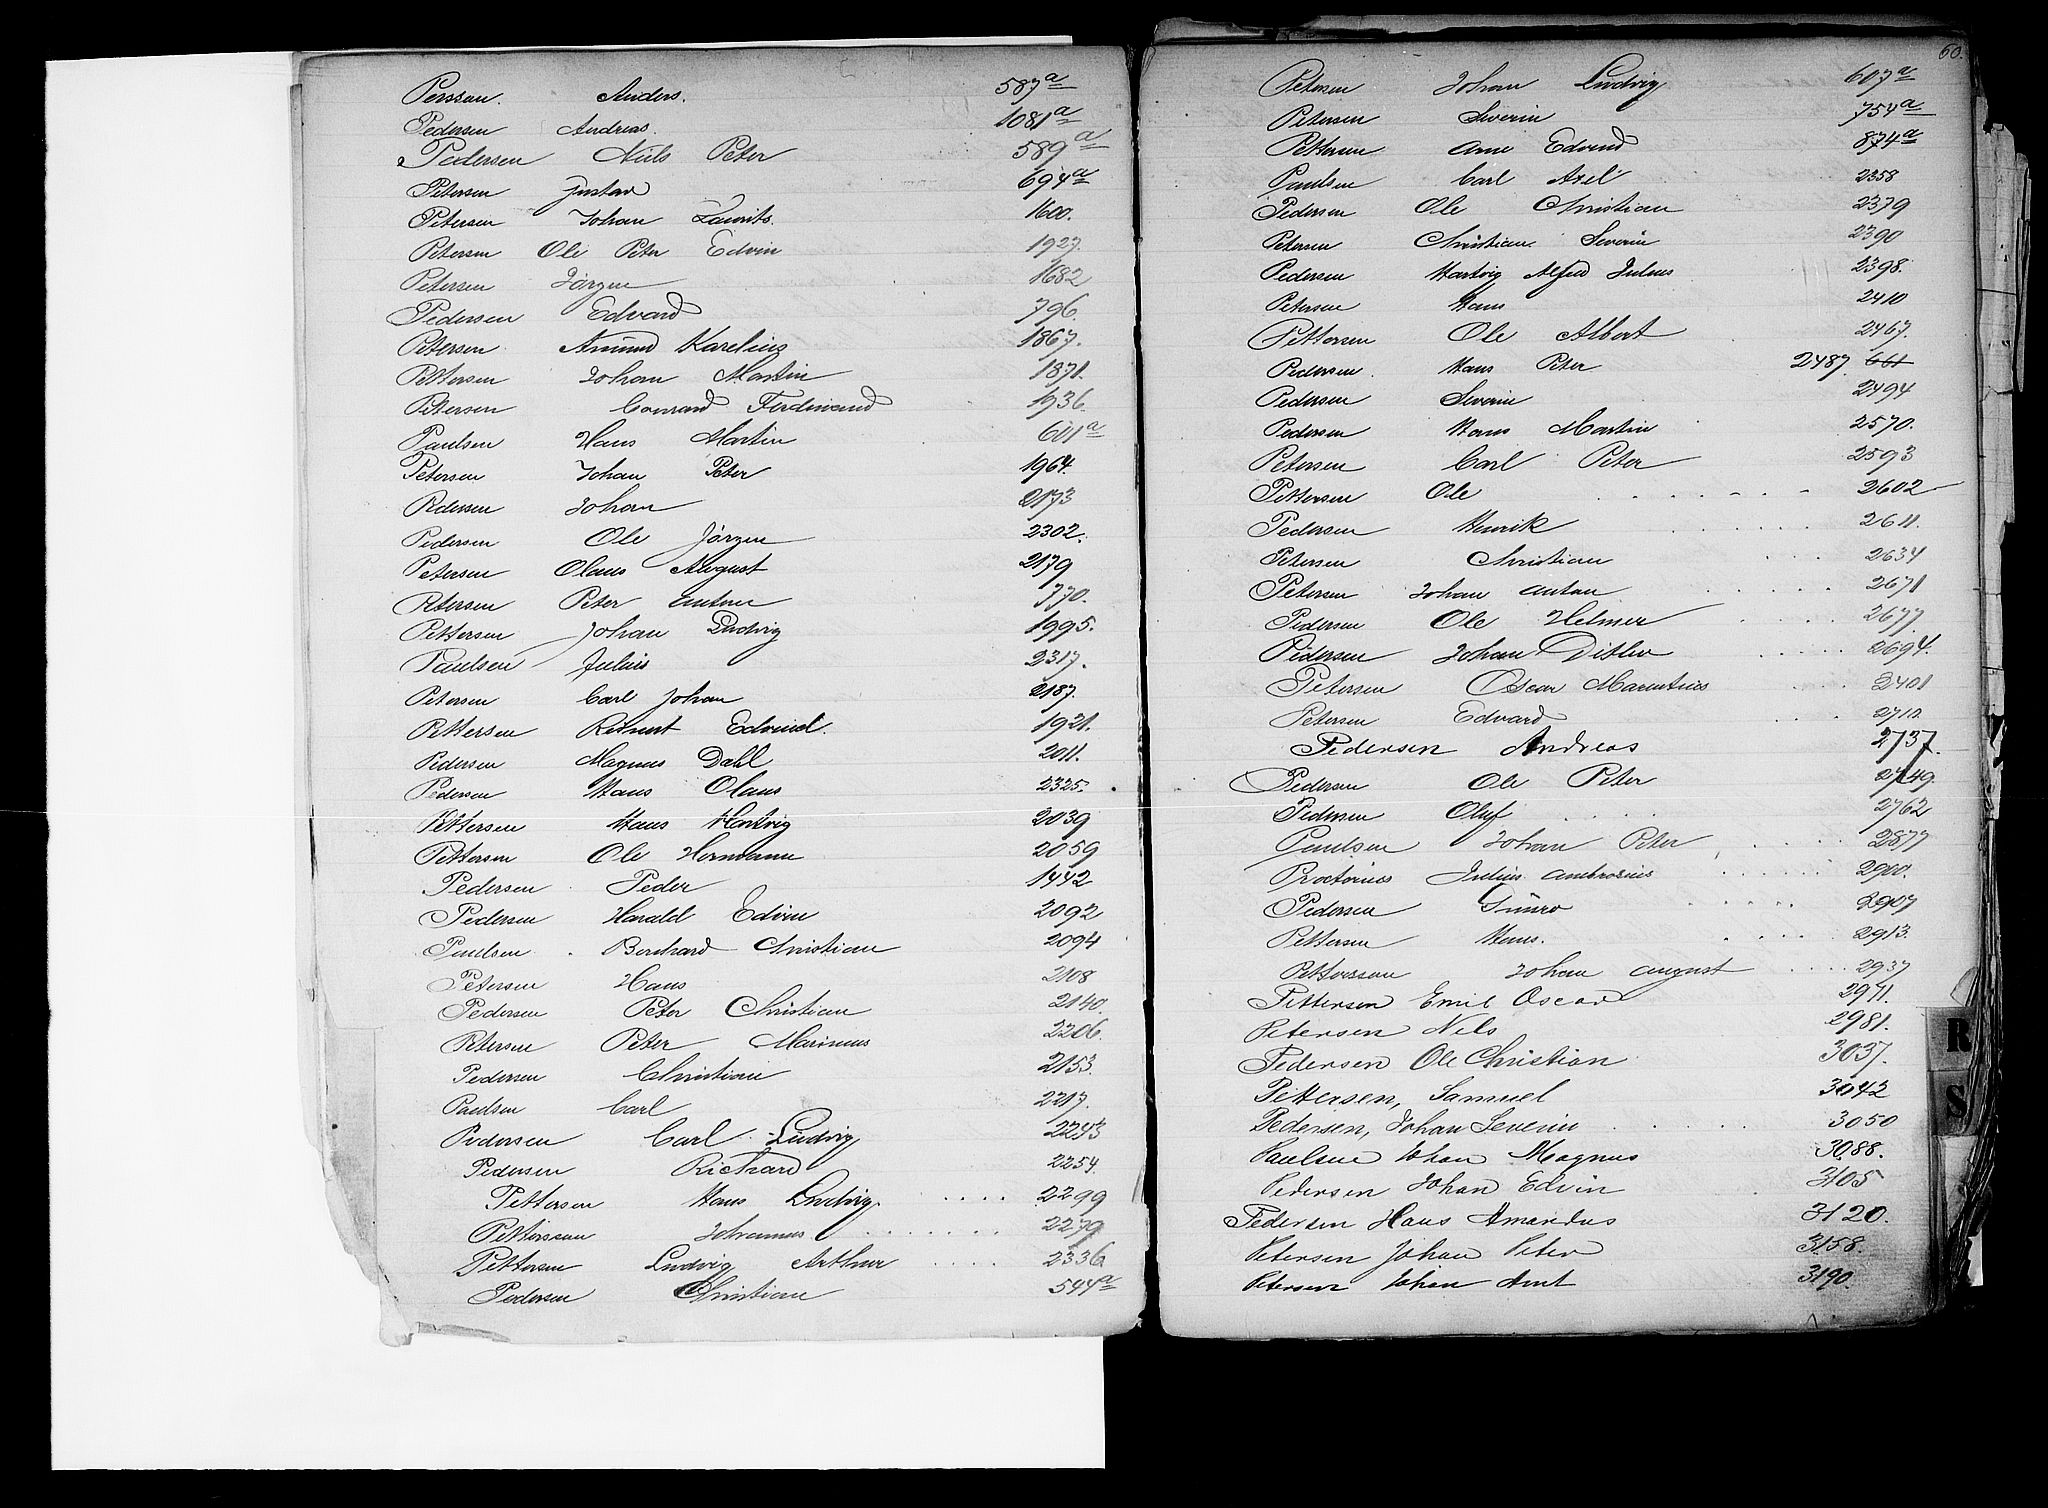 Persson. Anders. 587 a
Pedersen Andreas. 1081 a
Pedersen Niels Peter 589 a
Petersen Gustav 694 a
Petersen Johan Laurits. 1600.
Petersen Ole Peter Edvin 1927.
Petersen Jörgen 1682
Pedersen Edvard 796.
Petersen Amund Karelius 1867.
Pettersen Johan Martin 1871.
Petersen Conrad Ferdinand 1936.
Paulsen Hans Martin 601 a
Petersen Johan Peter 1964.
Pedersen Johan 2173
Pedersen Ole Jörgen 2302.
Petersen Olaus August 2179
Petersen Peter Anton 770.
Pettersen Johan Ludvig 1995.
Paulsen Julius 2317.
Petersen Carl Johan 2187.
Pettersen Edvind. 1921.
Pedersen Magnus Dahl 2011.
Pedersen Hans Olaus 2325.
Pettersen Hans Hartvig 2039
Pettersen Ole Hermann 2059
Pedersen Peder 1442
Pedersen Harald Edvin 2092
Paulsen Bernhard Christian 2094
Petersen Hans 2108
Pedersen Peter Christian 2140.
Petersen Peter Marinius 2206.
Pedersen Christian 2153.
Paulsen Carl 2217.
Pedersen Carl Ludvig 2243
Pedersen Richard 2254.
Pettersen Hans Ludvig. 2299
Pettersson Johannes 2279
Pettersen Ludvig Arthur 2336
Pedersen Christian 544 a
60.
Petersen Johan Ludvig 607 a
Petersen Severin 754 a
Pettersen Arne Edvind 874 a
Paulsen Carl Axel 2358
Pedersen Ole Christian 2379
Petersen Christian Severin 2390
Pedersen Hartvig Alfred Julius 2398.
Petersen Hans 2410
Pettersen Ole Albert 2467.
Pedersen Hans Peter 2487 661
Pedersen Severin 2494
Pedersen Hans Martin 2570.
Petersen Carl Peter 2593
Pettersen Ole 2602
Pedersen Henrik 2611.
Petersen Christian 2634
Petersen Johan Anton 2671
Pedersen Ole Helmer 2677
Pedersen Johan Ditlev 2694.
Petersen Oscar Marentius 2401
Petersen Edvard 2712.
Pedersen Andreas 2737.
Pedersen Ole Peter 2749.
Pedersen Oluf 2762
Paulsen Johan Peter 2877
Proctorius Julius Ambrosius 2900.
Pedersen Gunro 2907
Pettersen Hans. 2913.
Petterson Johan August 2937
Pettersen Emil Oscar 2971.
Petersen Nils 2981.
Pedersen Ole Christian 3037.
Pettersen, Samuel 3042
Pedersen, Johan Severin 3050
Paulsen Johan Magnus 3088.
Pedersen Johan Edvin 3105
Pedersen Hans Amandus 3120.
Petersen Johan Peter 3158.
Petersen Johan Arnt 3190.
R
S